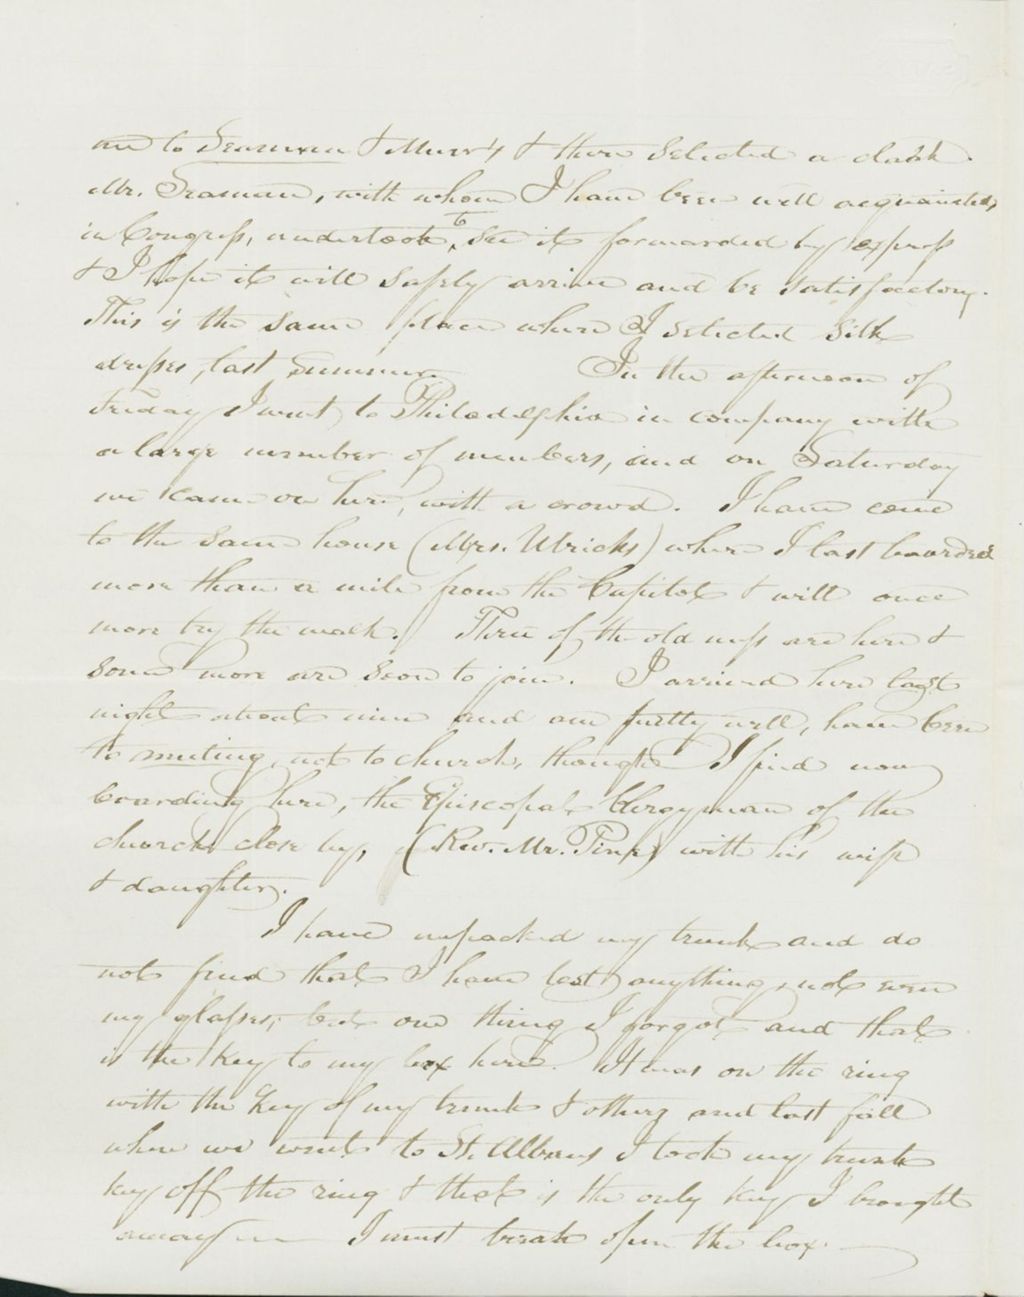 me to Seaman & Muir's & there selected a cloak.
Mr. Seaman, with whom I have been well acquainted,
in Congress, undertook to see it forwarded by express
& I hope it will safely arrive and be satisfactory.
This is the same place where I selected silk
dresses, last summer. In the afternoon of
Friday I went to Philadelphia in company with
a large number of members, and on Saturday
we came on here, with a crowd. I have come
to the same house (Mrs. Ulricks) where I last boarded
more than a mile from the Capitol & will once
more try the walk. Three of the old mess are here &
some more are soon to join. I arrived here last
night about nine and am pretty well, have been
to meeting, not to church, though I find now
boarding here, the Episcopal Clergyman of the
church close by, (Rev. Mr. Pine) with his wife
& daughter.
I have unpacked my trunk and do
not find that I have lost anything, not even
my glasses; but one thing I forgot and that
is the key to my box here. It was on the ring
with the key of my trunk & others and last fall
when we went to St. Albans I took my trunk
key off the ring & that is the only key I brought
away I must break open the box.